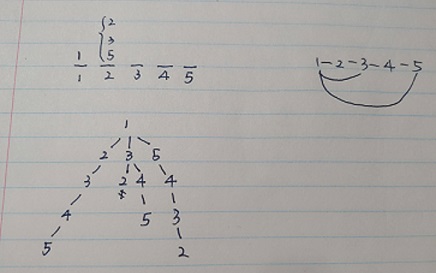 2
3
1 5
1 2 3 4 5
1-2-3-4-5
1
2 3 5
3 2 4 4
4 5 3
5 2